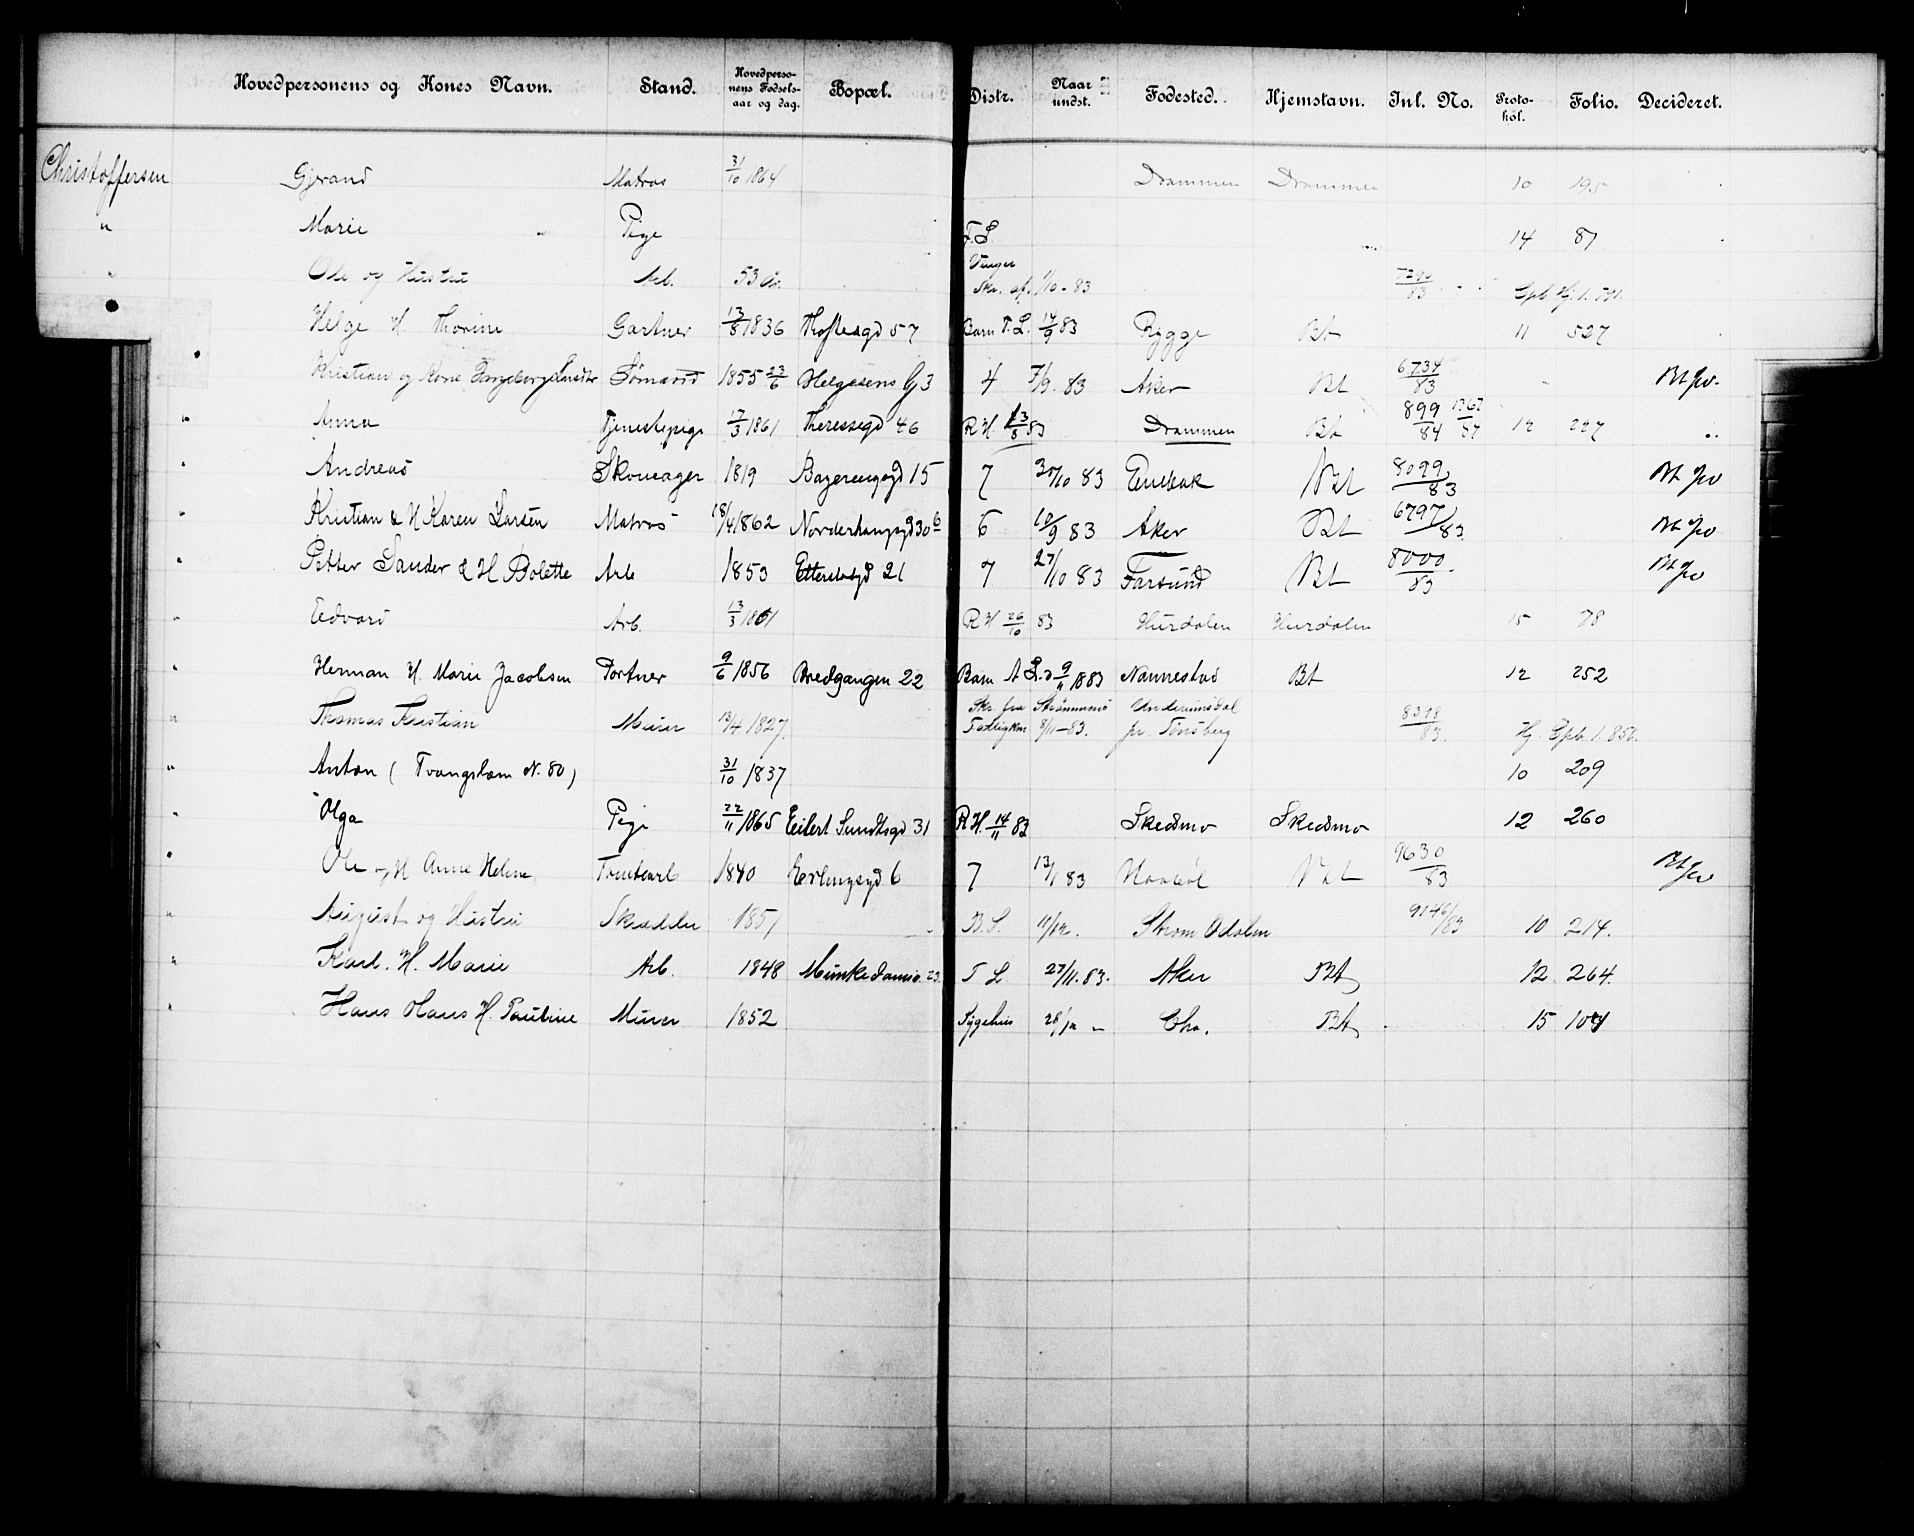 Hovedpersonens og Kones Navn. Stand. Hovedpersonens Fødselsaar og dag. Bopæl. Distr. Naar undst. Fødested. Hjemstavn. Jnl. No. Protokol. Folio. Decideret.
Christoffersen Gjerand Matros 31/10 1864 Drammen Drammen 10 195
" Marie Pige F. L. 14 87
" Ole og Hustru Arb. 53 Aar Vinger Skr. af. 1/10 - 83 7290/83
Helge H. Thorine Gartner 13/8 1836 Thoftesgd 57 Barn T. L. 14/9 83 Rygge Bt 11 527
Kristian og Kone Sømand 1855 23/6 Helgesens G 3 4 7/9. 83 Aker Bt 6734/83 Bt
" Anna Tjenestepige 17/3 1861 Theresesgd 46 R H 83 Drammen Bt 899/84 1367/87 12 227
" Andreas Skomager 1819 15 7 30/10 83 Enebak Bt 8099/83 Bt
" Kristian & H Karen Larsen Matros 18/4 1862 6 10/9 83 Aker Bt 6797/83 Bt
" Petter Sander & H Bolette Arb 1853 21 7 27/10 83 Farsund Bt 8000/83 Bt
" Edvard Arb. 13/3 1861 R H 26/10 83 Hurdalen Hurdalen 15 78
" Herman H. Marie Jacobsen Portner 9/6 1856 Bredgangen 22 Barn A L. 9/11 1883 Nannestad Bt 12 252
" Thomas Kristian Murer 13/4 1827. Skr. fra Strømmens Fattigkm 8/11-83. pr. Tønsberg 8398/83. Hj.
" Anton ( Tvangslem N. 80 ) 31/10 1837 10 209
" Olga Pige 22/11 1865 Eilert Sundtsgd 31 R H. 14/11 83 Skedsmo Skedsmo 12 260
" Ole og H Anne Helene Tomtearb 1840 Erlingsgd 6 7 83 Bt 9630/83 Bt
" August og Hustru Skrædder 1851 B. S. 11/12. Strøm Odalen 9146/83 10 214.
" Karl. H. Marie Arb. 1848 Munkedamsv. 23. T L. 27/11. 83. Aker Bt 12 264.
" Hans Hans H. Pauline Murer 1852 Sygehus 28/12 - Cha. Bt 15 104